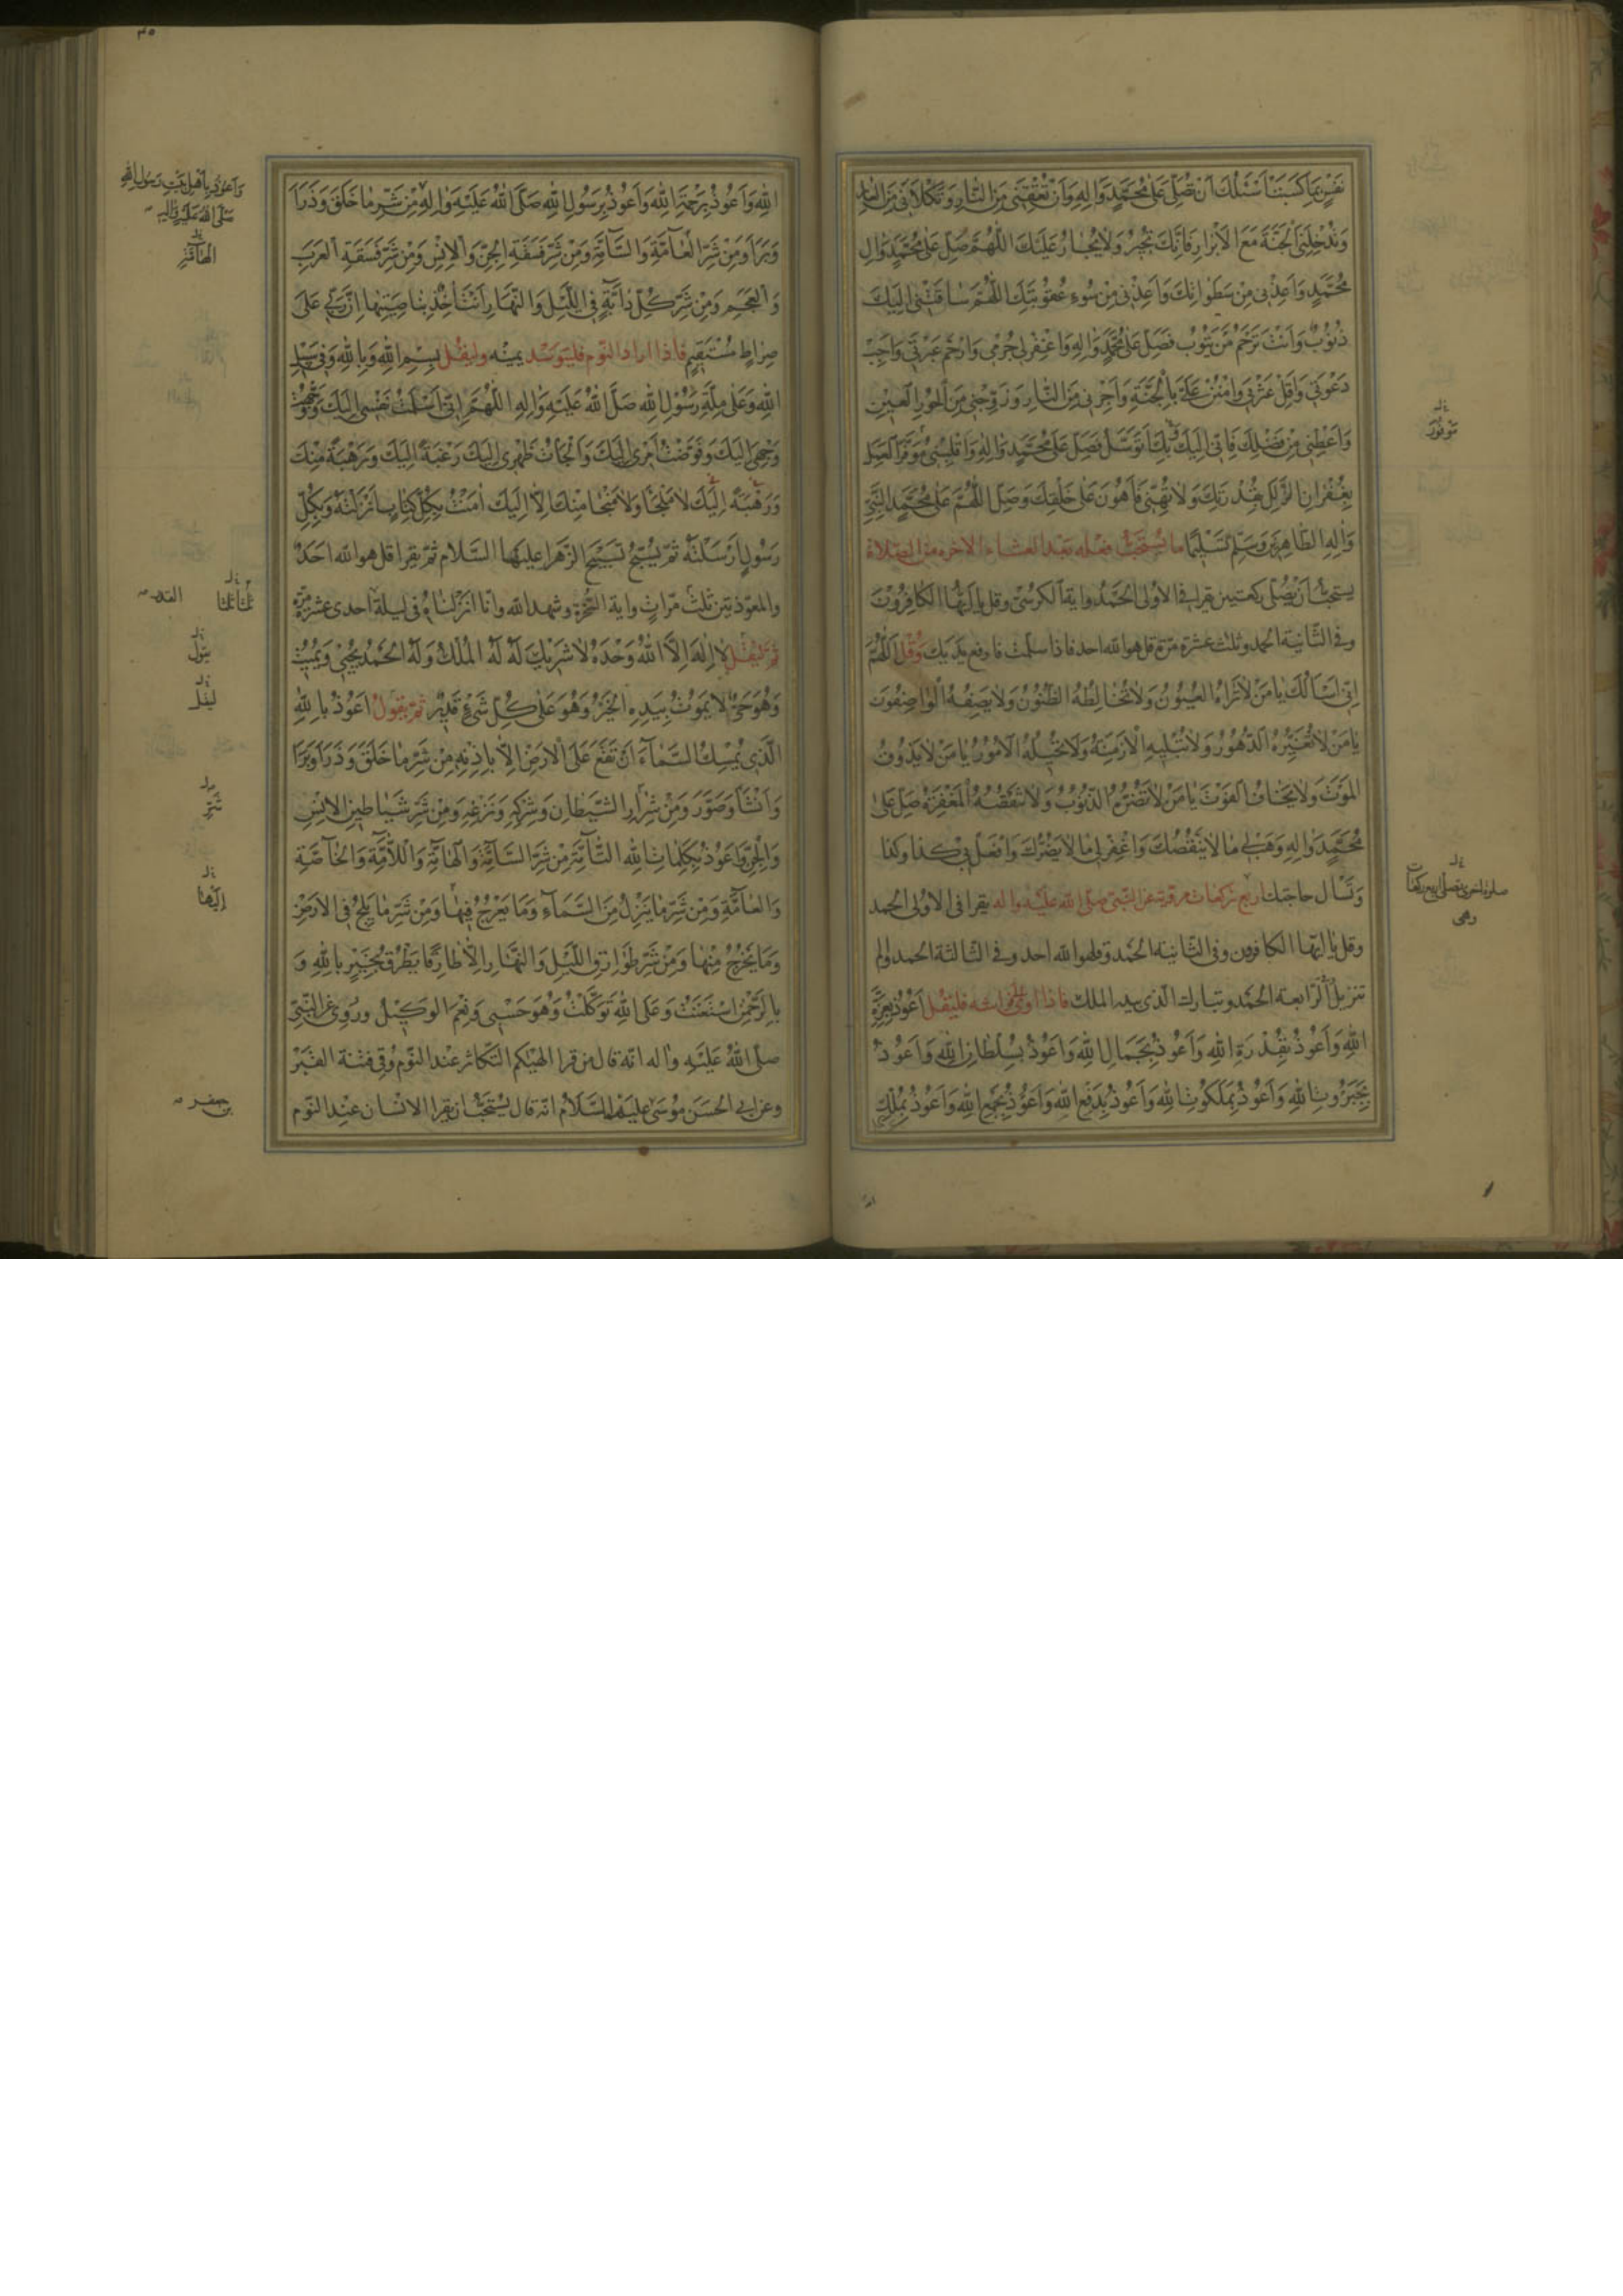 نَفْسٍ بِمَا كَسَبَتْ اَسْئَلُكَ اَنْ تُصَلِّيَ عَلى مُحَمَّدٍ وَالِهِ وَاَنْ تُعْتِقَنِي مِنَ النَّارِ وَتَكْلَاَنِي مِنَ العَارِ
وَتُدْخِلَنِي الْجَنَّةَ مَعَ الْاَبْرَارِ فَاِنَّكَ تُجِيرُ وَلَا يُجَارُ عَلَيْكَ اللّهُمَّ صَلِّ عَلى مُحَمَّدٍ وَالِ
مُحَمَّدٍ وَاَعِذْنِي مِنْ سَطَوَاتِكَ وَاَعِذْنِي مِنْ سُوءِ عُقُوبَتِكَ اللّهُمَّ سَاقَتْنِي اِلَيْكَ
ذُنُوبٌ وَاَنْتَ تَرْحَمُ مَنْ يَتُوبُ فَصَلِّ عَلى مُحَمَّدٍ وَالِهِ وَاغْفِرْ لِي جُرْمِي وَارْحَمْ عَبْرَتِي وَاَجِبْ
دَعْوَتِي وَاَقِلْ عَثْرَتِي وَامْنُنْ عَلَيَّ بِالْجَنَّةِ وَاَجِرْنِي مِنَ النَّارِ وَزَوِّجْنِي مِنَ الْحُورِ الْعِينِ
وَاَعْطِنِي مِنْ فَضْلِكَ فَاِنِّي اِلَيْكَ بِكَ اَتَوَسَّلُ فَصَلِّ عَلى مُحَمَّدٍ وَالِهِ وَاقْلِبْنِي مُوَفَّرَ الْعَمَلِ
بِغُفْرَانِ الزَّلَلِ بِقُدْرَتِكَ وَلَا تُهِنِّي فَاَهُونَ عَلى خَلْقِكَ وَصَلِّ اللّهُمَّ عَلى مُحَمَّدٍ النَّبِيِّ
وَالِهِ الطَّاهِرِينَ وَسَلِّمْ تَسْلِيمًا ما يُسْتَحَبُّ فعله بعد العشاء الاخرة من الصلاة
يستحبّ اَنْ يُصَلِّي ركعتين يقرا في الاولى الحَمْدُ واية الكرسيّ وقل يا اَيُّهَا الكافِرُونَ
وفي الثّانية الحمد وثلث عشرة مرّة قل هو الله احد فاذا سلّمت فارفع يديك وَقُل اَللّهُمَّ
اِنِّي اَسْاَلُكَ يا مَنْ لا تَراهُ العُيُونُ وَلا تُخالِطُهُ الظُّنُونُ وَلا يَصِفُهُ الْواصِفُونَ
يا مَنْ لا تُغَيِّرُهُ الدُّهُورُ وَلا تُبْلِيهِ الْاَزْمِنَةُ وَلا تُحِيلُهُ الْاُمُورُ يا مَنْ لا يَذُوقُ
المَوْتَ وَلا يَخافُ الفَوْتَ يا مَنْ لا تَضُرُّهُ الذُّنُوبُ وَلا تَنْقُصُهُ الْمَغْفِرَةُ صَلِّ عَلى
مُحَمَّدٍ وَالِهِ وَهَبْ لِي ما لا يَنْقُصُكَ وَاغْفِرْ لِي ما لا يَضُرُّكَ وَافْعَلْ بِي كذا وكذا
وَتَسْاَل حاجتك اربع ركعات مروية عن النّبي صلّى الله عليه واله يقرا في الاولى الحمد
وقل يا ايّها الكافرون وفي الثّانية الحَمد وقل هو الله احد وفي الثّالثة الحمد والم
تنزيل الرّابعة الحَمْد وتبارك الّذي بيده الملك فاذا اوى الى فراشه فليَقُل اَعُوذُ بِعِزَّةِ
اللهِ وَاَعُوذُ بِقُدْرَةِ اللهِ وَاَعُوذُ بِجَمَالِ اللهِ وَاَعُوذُ بِسُلْطَانِ اللهِ وَاَعُوذُ
بِجَبَرُوتِ اللهِ وَاَعُوذُ بِمَلَكُوتِ اللهِ وَاَعُوذُ بِدَفْعِ اللهِ وَاَعُوذُ بِجَمْعِ اللهِ وَاَعُوذُ بِمُلْكِ
صلوة اخرى تصلّي اربع ركعات
وهي
اللهِ وَاَعُوذُ بِرَحْمَةِ اللهِ وَاَعُوذُ بِرَسُولِ اللهِ صَلَّى اللهُ عَلَيْهِ وَالِهِ مِنْ شَرِّ ما خَلَقَ وَذَرَاَ
وَبَرَاَ وَمِنْ شَرِّ الْعامَّةِ وَالسَّامَّةِ وَمِنْ شَرِّ فَسَقَةِ الْجِنِّ وَالْاِنْسِ وَمِنْ شَرِّ فَسَقَةِ الْعَرَبِ
وَالْعَجَمِ وَمِنْ شَرِّ كُلِّ دابَّةٍ فِي اللَّيْلِ وَالنَّهَارِ اَنْتَ اخِذٌ بِناصِيَتِها اِنَّ رَبِّي عَلى
صِراطٍ مُسْتَقِيمٍ فاذا اراد النوم فليتوسّد يمينه وليقل بِسْمِ اللهِ وَبِاللهِ وَفِي سَبِيلِ
اللهِ وَعَلى مِلَّةِ رَسُولِ اللهِ صَلَّى اللهُ عَلَيْهِ وَالِهِ اللّهُمَّ اِنِّي اَسْلَمْتُ نَفْسِي اِلَيْكَ وَوَجَّهْتُ
وَجْهِي اِلَيْكَ وَفَوَّضْتُ اَمْرِي اِلَيْكَ وَاَلْجَأْتُ ظَهْرِي اِلَيْكَ رَغْبَةً اِلَيْكَ وَرَهْبَةً مِنْكَ
وَرَهْبَةً اِلَيْكَ لا مَلْجَأَ وَلا مَنْجا مِنْكَ اِلّا اِلَيْكَ امَنْتُ بِكُلِّ كِتابٍ اَنْزَلْتَهُ وَبِكُلِّ
رَسُولٍ اَرْسَلْتَهُ ثمّ يُسَبِّح تسبيح الزّهرا عليها السَّلام ثمّ يقرا قل هو الله احد
والمعوّذتين ثلث مرّات واية السّخرة وشهد الله وانّا انزلناه في ليلة احدى عشرة مرّة
ثمّ لْيَقُل لا اِلهَ اِلَّا اللهُ وَحْدَهُ لا شَرِيكَ لَهُ لَهُ الْمُلْكُ وَلَهُ الْحَمْدُ يُحْيِي وَيُمِيتُ
وَهُوَ حَيٌّ لا يَمُوتُ بِيَدِهِ الْخَيْرُ وَهُوَ عَلى كُلِّ شَيْءٍ قَدِيرٌ ثمّ يقول اَعُوذُ بِاللهِ
الَّذِي يُمْسِكُ السَّماءَ اَنْ تَقَعَ عَلَى الْاَرْضِ اِلَّا بِاِذْنِهِ مِنْ شَرِّ ما خَلَقَ وَذَرَاَ وَبَرَاَ
وَاَنْشَاَ وَصَوَّرَ وَمِنْ شَرِّ الشَّيْطانِ وَشِرْكِهِ وَنَزْغِهِ وَمِنْ شَرِّ شَياطِينِ الْاِنْسِ
وَالْجِنِّ وَاَعُوذُ بِكَلِماتِ اللهِ التَّامَّةِ مِنْ شَرِّ السَّامَّةِ وَالْهامَّةِ وَاللَّامَّةِ وَالْخاصَّةِ
وَالْعامَّةِ وَمِنْ شَرِّ ما يَنْزِلُ مِنَ السَّماءِ وَما يَعْرُجُ فِيها وَمِنْ شَرِّ ما يَلِجُ فِي الْاَرْضِ
وَما يَخْرُجُ مِنْها وَمِنْ شَرِّ طَوارِقِ اللَّيْلِ وَالنَّهارِ اِلّا طارِقًا يَطْرُقُ بِخَيْرٍ بِاللهِ وَ
بِالرَّحْمنِ اسْتَعَنْتُ وَعَلَى اللهِ تَوَكَّلْتُ وَهُوَ حَسْبِي وَنِعْمَ الْوَكِيلُ ورُوِيَ عن النّبيّ
صلّى اللهُ عَلَيْهِ واله انّه قال من قرا الهيكم التّكاثر عند النّوم وُقِي فتنة القبر
وعن ابي الحسن موسى عليهما السَّلام انّه قال يُستحبّ ان يقرا الانسان عند النّوم
وَاَعُوذُ بِاَهْلِ بَيْتِ رَسُولِ اللهِ
صَلَّى اللهُ عَلَيْهِ وَالِهِ
الْهامَّةِ
القدر
ثلثا ثلثا
يقول
ليقل
شرّ
اِلَيْها
بن جعفر